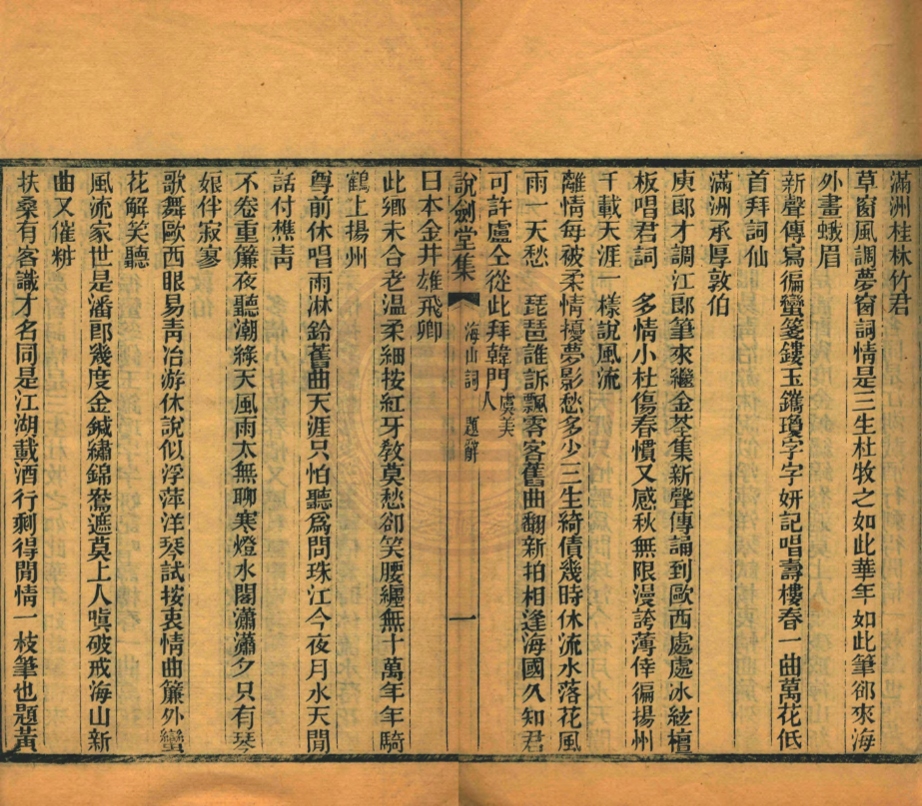 滿洲桂林竹君
草窗風調夢窗詞情是三生杜牧之如此華年如此筆卻來海
外畫蛾眉
新聲傳寫徧蠻箋鏤玉鐫瓊字字妍記唱壽樓春一曲萬花低
首拜詞仙
滿洲承厚敦伯
庾郎才調江郎筆來繼金荃集新聲傳誦到歐西處處冰絃檀
板唱君詞　多情小杜傷春慣又感秋無限漫誇薄倖徧揚州
千載天涯一樣說風流
離情每被柔情擾夢影愁多少三生綺債幾時休流水落花風
雨一天愁　琵琶誰訴飄零客舊曲翻新拍相逢海國久知君
可許盧仝從此拜韓門虞美人
說劍堂集　海山詞　題辭　一
日本金井雄飛卿
此鄉未合老溫柔細按紅牙敎莫愁卻笑腰纏無十萬年年騎
鶴上揚州
尊前休唱雨淋鈴舊曲天涯只怕聽爲問珠江今夜月水天閒
話付樵靑
不卷重簾夜聽潮綠天風雨太無聊寒燈水閣瀟瀟夕只有琴
娘伴寂寥
歌舞歐西眼易靑冶游休說似浮萍洋琴試按衷情曲簾外蠻
花解笑聽
風流家世是潘郎幾度金鍼繡錦鴛遮莫上人嗔破戒海山新
曲又催粧
扶桑有客識才名同是江湖載酒行剩得閒情一枝筆也題黃